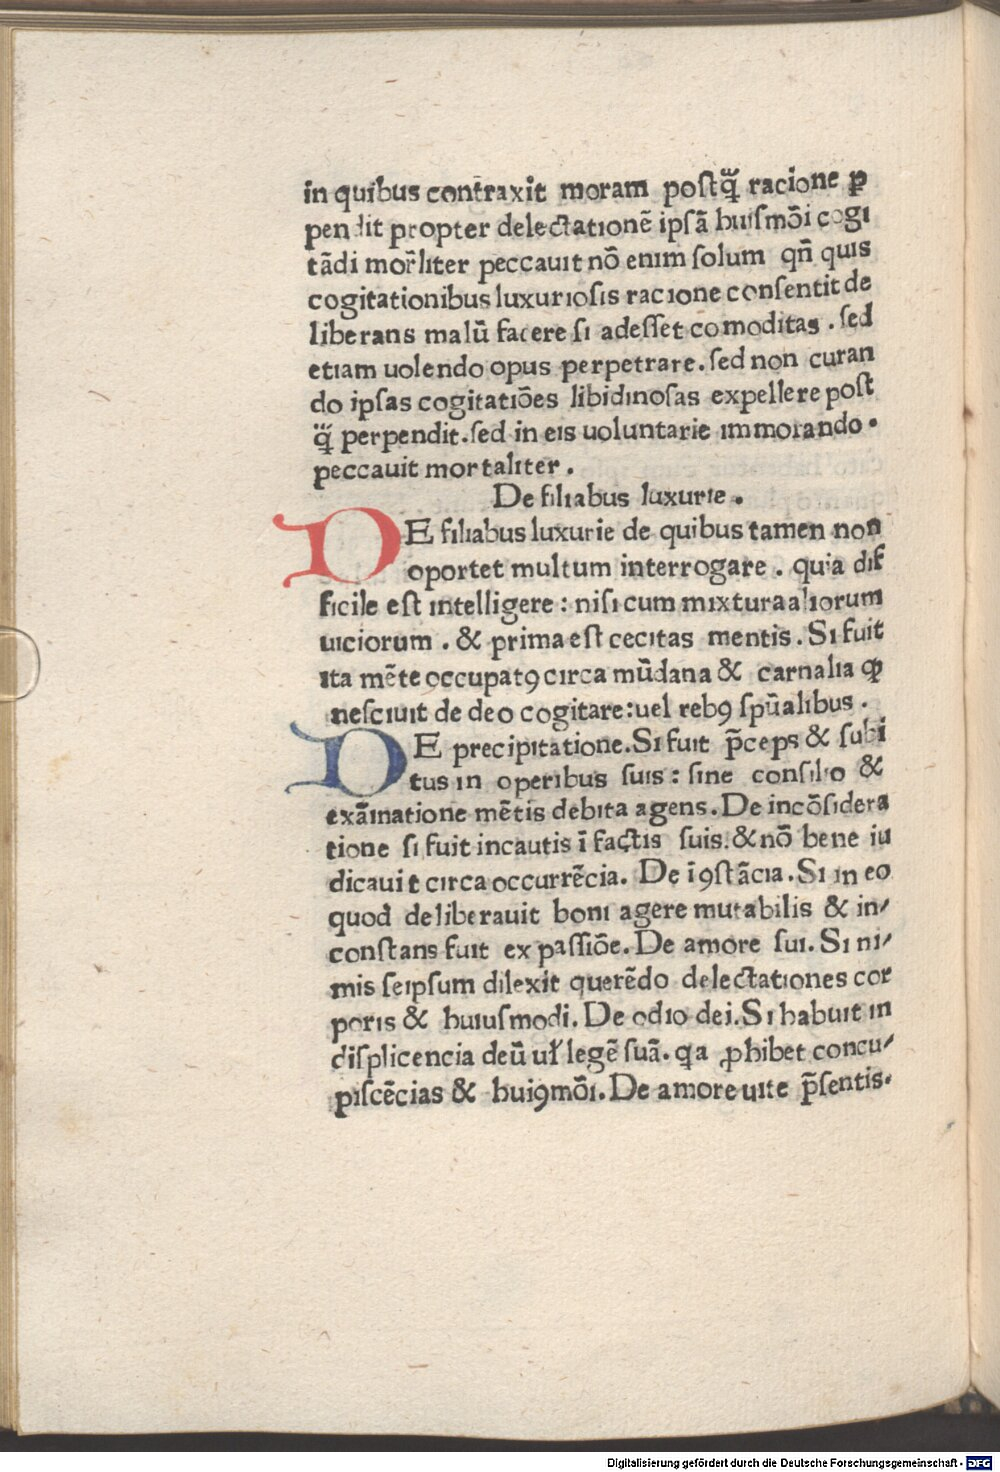 in quibus contraxit moram postq̃̈ racione ꝑ
pendit propter delectationē ipsā huiſmōi cogi
tādi mor̃liter peccauit nō enim ſolum qn̄ quis
cogitationibus luxurioſis racione conſentit de
liberans malū facere ſi adeſſet comoditas . ſed
etiam uolendo opus perpetrare . ſed non curan
do ipſas cogitatiōes libidinoſas expellere poſt
q̃̈ perpendit . ſed in eis uoluntarie immorando .
peccauit mortaliter .
De filiabus luxurie .
DE filiabus luxurie de quibus tamen non
oportet multum interrogare . quia dif
ficile eſt intelligere : niſi cum mixtura aliorum
uiciorum . & prima eſt cecitas mentis . Si fuit
ita mēte occupatꝯ circa mūdana & carnalia ꝙ
neſciuit de deo cogitare : uel rebꝯ ſpūalibus .
DE precipitatione . Si fuit p̄ceps & ſubi
tus in operibus ſuis : ſine conſilio &
exāinatione mētis debita agens . De incōſidera
tione ſi fuit incautis ī factis ſuis . & nō bene iu
dicauit circa occurrēcia . De īꝯſtācia . Si in eo
quod deliberauit boni agere mutabilis & in⸗
conſtans fuit ex paſſiōe . De amore ſui . Si ni⸗
mis ſeipſum dilexit querēdo delectationes cor
poris & huiuſmodi . De odio dei . Si habuit in
diſplicencia deū uł legē ſuā . qa ꝓhibet concu⸗
piſcēcias & huiꝯmōi . De amore uite p̄ſentis .
Digitalisierung gefördert durch die Deutsche Forschungsgemeinschaft - DFG